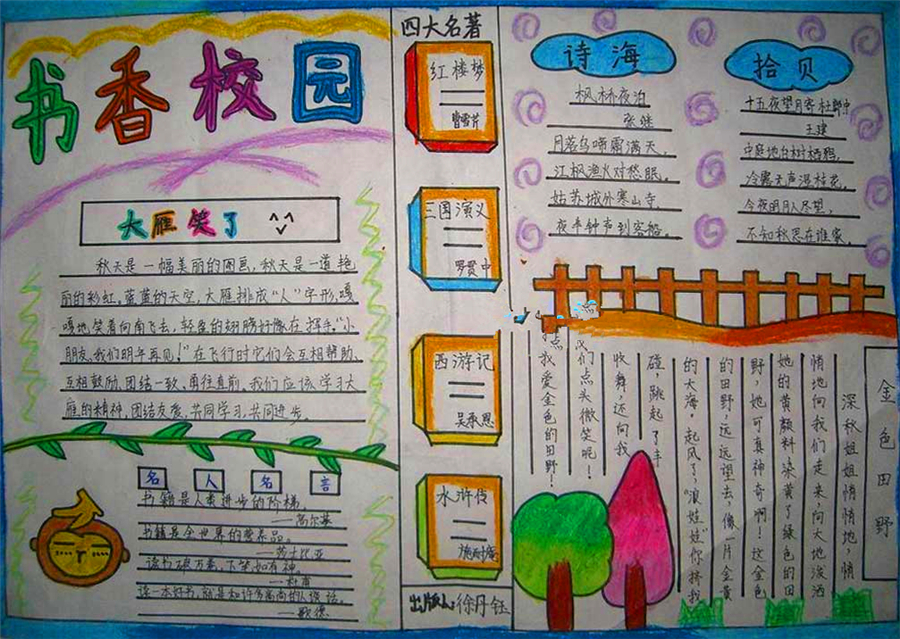 书香校园
大雁笑了 ^ ^
秋天是一幅美丽的图画，秋天是一道艳
丽的彩虹，蓝蓝的天空，大雁排成“人”字形，嘎
嘎地笑着向南飞去，轻盈的翅膀好像在挥手。“小
朋友，我们明年再见！”在飞行时它们会互相帮助、
互相鼓励、团结一致、勇往直前，我们应该学习大
雁的精神，团结友爱，共同学习，共同进步。
名人名言
书籍是人类进步的阶梯。
——高尔基
书籍是全世界的营养品。
——莎士比亚
读书破万卷，下笔如有神。
——杜甫
读一本好书，就是和许多高尚的人谈话。
——歌德
四大名著
红楼梦
曹雪芹
三国演义
罗贯中
西游记
吴承恩
水浒传
施耐庵
出版人：徐丹钰
诗海
枫桥夜泊
张继
月落乌啼霜满天，
江枫渔火对愁眠。
姑苏城外寒山寺，
夜半钟声到客船。
拾贝
十五夜望月寄杜郎中
王建
中庭地白树栖鸦，
冷露无声湿桂花。
今夜月明人尽望，
不知秋思在谁家。
金色田野
深秋姐姐悄悄地，悄
悄地向我们走来，向大地泼洒
她的黄颜料染黄了绿色的田
野，她可真神奇啊！这金色
的田野，远远望去，像一片金黄
的大海。起风了，“浪娃娃”你挤我
碰，跳起了丰
收舞，还向我
们点头微笑呢！
我爱金色的田野！